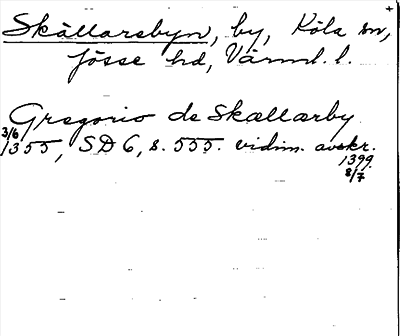 Skällarsbyn, by, Köla sn,
Jösse hd, Värml. l.
Gregorio de Skællarby
3/6
1355, SD 6, s. 555. vidim. avskr.
1399
8/7